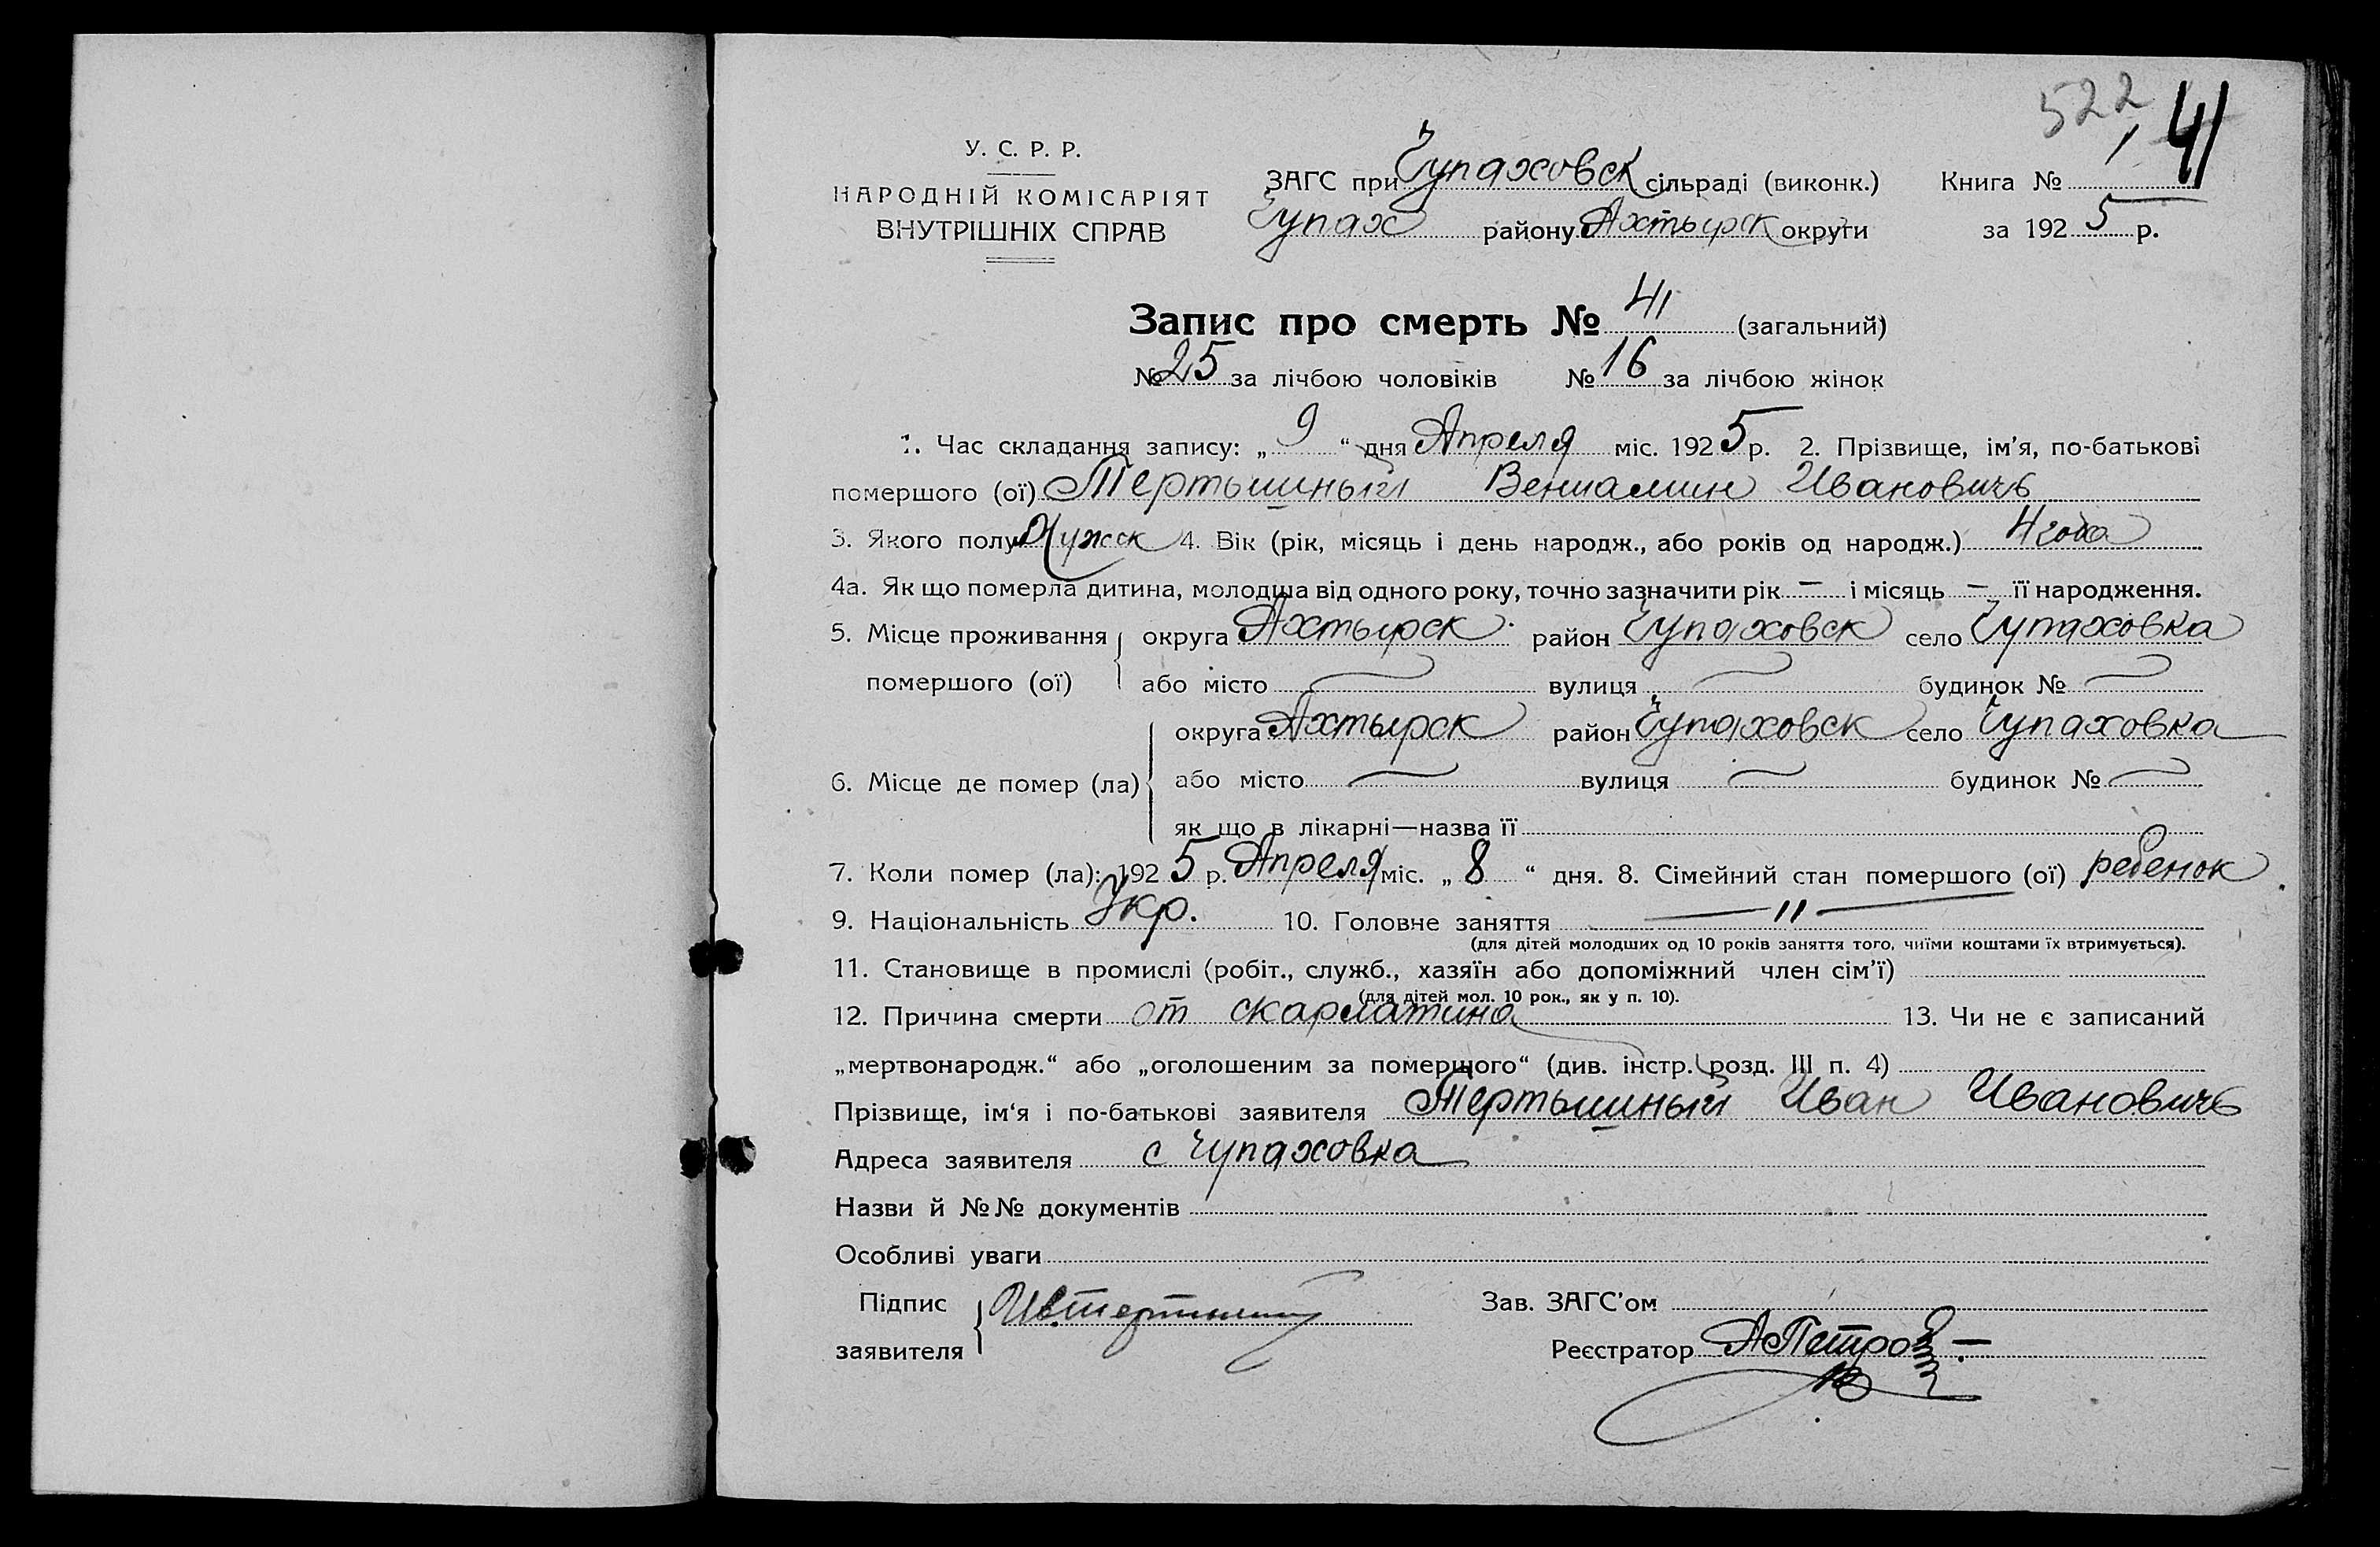 522
41
У. С. Р. Р.
НАРОДНІЙ КОМІСАРІЯТ
ВНУТРІШНІХ СПРАВ
ЗАГС при Чупаховск сільраді (виконк.) Книга № 1
Чупах району Ахтырск округи за 1925 р.
Запис про смерть № 41 (загальний)
№ 25 за лічбою чоловіків № 16 за лічбою жінок
1. Час складання запису: „ 9 “ дня Апреля міс. 1925 р. 2. Прізвище, ім’я, по-батькові
помершого (ої) Тертышный Вениамин Ивановичь
3. Якого полу Мужск 4. Вік (рік, місяць і день народж., або років од народж.) 4 года
4а. Як що померла дитина, молодша від одного року, точно зазначити рік — і місяць — її народження.
5. Місце проживання округа Ахтырск район Чупаховск село Чупаховка
помершого (ої) або місто — вулиця — будинок № —
округа Ахтырск район Чупаховск село Чупаховка
6. Місце де помер (ла) або місто — вулиця — будинок № —
як що в лікарні—назва її
7. Коли помер (ла): 1925 р. Апреля міс. „ 8 “ дня. 8. Сімейний стан помершого (ої) ребенок
9. Національність Укр. 10. Головне заняття — 〃 —
(для дітей молодших од 10 років заняття того, чиїми коштами їх втримується).
11. Становище в промислі (робіт., служб., хазяїн або допоміжний член сім’ї)
(для дітей мол. 10 рок., як у п. 10).
12. Причина смерти от скарлатина 13. Чи не є записаний
„мертвонародж.“ або „оголошеним за помершого“ (див. інстр. розд. III п. 4)
Прізвище, ім‘я і по-батькові заявителя Тертышный Иван Ивановичь
Адреса заявителя с Чупаховка
Назви й №№ документів
Особливі уваги
Підпис Ив. Тертышный Зав. ЗАГС’ом
заявителя Реєстратор А Петров